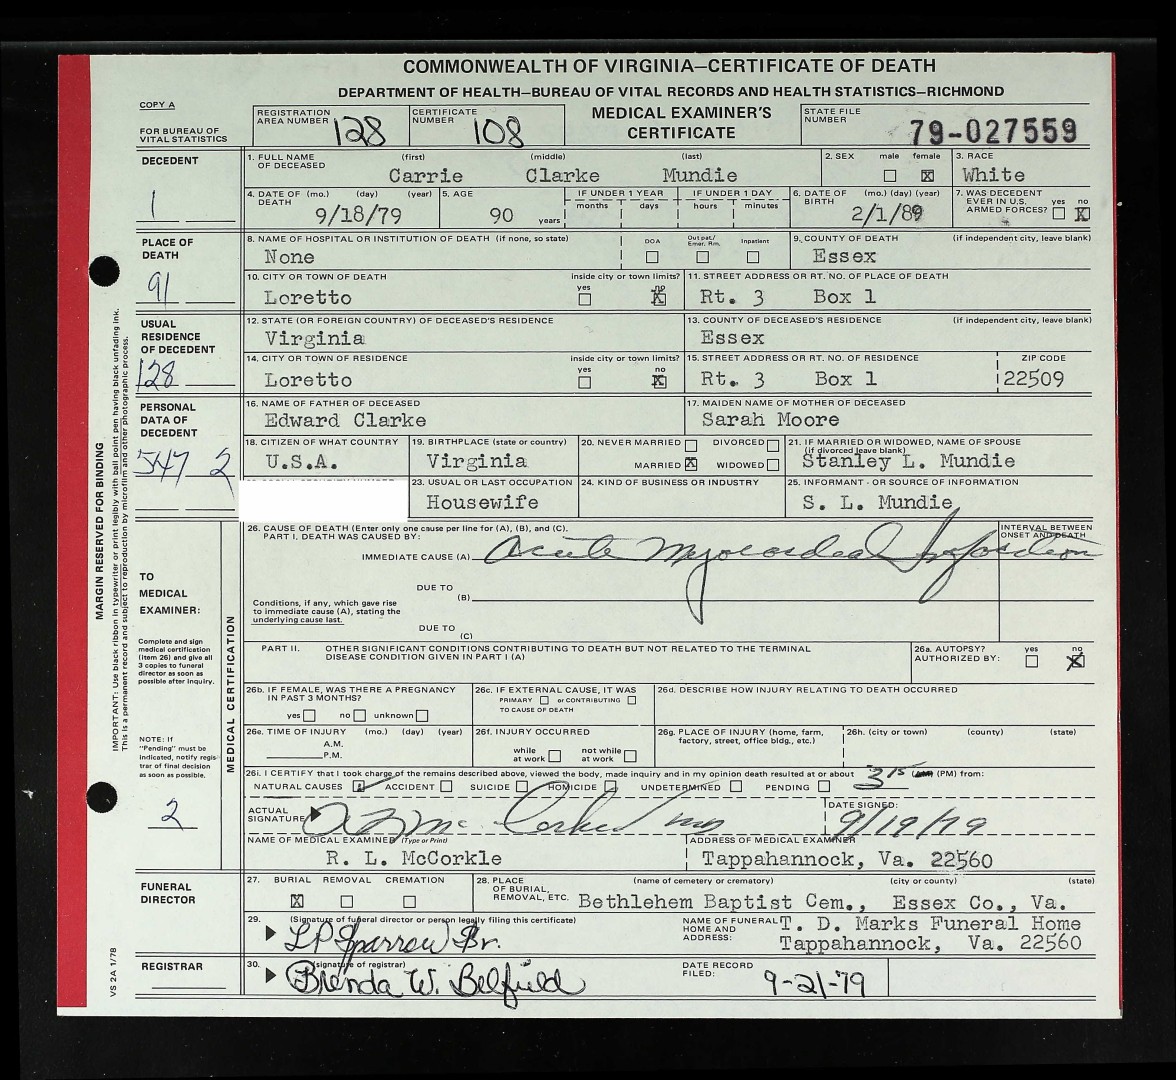 COMMONWEALTH OF VIRGINIA—CERTIFICATE OF DEATH
DEPARTMENT OF HEALTH—BUREAU OF VITAL RECORDS AND HEALTH STATISTICS—RICHMOND
COPY A
FOR BUREAU OF VITAL STATISTICS
REGISTRATION AREA NUMBER 128
CERTIFICATE NUMBER 108
MEDICAL EXAMINER'S CERTIFICATE
STATE FILE NUMBER 79-027559
DECEDENT
1
1. FULL NAME OF DECEASED (first) (middle) (last)
Carrie Clarke Mundie
2. SEX male female X
3. RACE
White
4. DATE OF DEATH (mo.) (day) (year)
9/18/79
5. AGE
90 years
IF UNDER 1 YEAR months days
IF UNDER 1 DAY hours minutes
6. DATE OF BIRTH (mo.) (day) (year)
2/1/89
7. WAS DECEDENT EVER IN U.S. ARMED FORCES? yes no X
PLACE OF DEATH
91
8. NAME OF HOSPITAL OR INSTITUTION OF DEATH (if none, so state)
None
DOA Outpat/ Emer. Rm. Inpatient
9. COUNTY OF DEATH (if independent city, leave blank)
Essex
10. CITY OR TOWN OF DEATH inside city or town limits? yes no X
Loretto
11. STREET ADDRESS OR RT. NO. OF PLACE OF DEATH
Rt. 3 Box 1
USUAL RESIDENCE OF DECEDENT
128
12. STATE (OR FOREIGN COUNTRY) OF DECEASED'S RESIDENCE
Virginia
13. COUNTY OF DECEASED'S RESIDENCE (if independent city, leave blank)
Essex
14. CITY OR TOWN OF RESIDENCE inside city or town limits? yes no X
Loretto
15. STREET ADDRESS OR RT. NO. OF RESIDENCE ZIP CODE
Rt. 3 Box 1 22509
PERSONAL DATA OF DECEDENT
547 2
16. NAME OF FATHER OF DECEASED
Edward Clarke
17. MAIDEN NAME OF MOTHER OF DECEASED
Sarah Moore
18. CITIZEN OF WHAT COUNTRY
U.S.A.
19. BIRTHPLACE (state or country)
Virginia
20. NEVER MARRIED DIVORCED
MARRIED X WIDOWED
21. IF MARRIED OR WIDOWED, NAME OF SPOUSE (if divorced leave blank)
Stanley L. Mundie
23. USUAL OR LAST OCCUPATION
Housewife
24. KIND OF BUSINESS OR INDUSTRY
25. INFORMANT - OR SOURCE OF INFORMATION
S. L. Mundie
MARGIN RESERVED FOR BINDING
IMPORTANT: Use black ribbon in typewriter or print legibly with ball point pen having black unfading ink.
This is a permanent record and subject to reproduction by microfilm and other photographic process.
TO MEDICAL EXAMINER:
Complete and sign medical certification (Item 26) and give all 3 copies to funeral director as soon as possible after inquiry.
NOTE: If "Pending" must be indicated, notify registrar of final decision as soon as possible.
2
MEDICAL CERTIFICATION
26. CAUSE OF DEATH (Enter only one cause per line for (A), (B), and (C).
PART I. DEATH WAS CAUSED BY:
INTERVAL BETWEEN ONSET AND DEATH
IMMEDIATE CAUSE (A) Acute Myocardial Infarction
DUE TO (B)
Conditions, if any, which gave rise to immediate cause (A), stating the underlying cause last.
DUE TO (C)
PART II. OTHER SIGNIFICANT CONDITIONS CONTRIBUTING TO DEATH BUT NOT RELATED TO THE TERMINAL DISEASE CONDITION GIVEN IN PART I (A)
26a. AUTOPSY? AUTHORIZED BY: yes no X
26b. IF FEMALE, WAS THERE A PREGNANCY IN PAST 3 MONTHS?
yes no unknown
26c. IF EXTERNAL CAUSE, IT WAS
PRIMARY or CONTRIBUTING
TO CAUSE OF DEATH
26d. DESCRIBE HOW INJURY RELATING TO DEATH OCCURRED
26e. TIME OF INJURY (mo.) (day) (year)
A.M.
P.M.
26f. INJURY OCCURRED
while at work not while at work
26g. PLACE OF INJURY (home, farm, factory, street, office bldg., etc.)
26h. (city or town) (county) (state)
26i. I CERTIFY that I took charge of the remains described above, viewed the body, made inquiry and in my opinion death resulted at or about 3 15 (PM) from:
NATURAL CAUSES ACCIDENT SUICIDE HOMICIDE UNDETERMINED PENDING
ACTUAL SIGNATURE McCorkle MD
DATE SIGNED:
9/19/79
NAME OF MEDICAL EXAMINER (Type or Print)
R. L. McCorkle
ADDRESS OF MEDICAL EXAMINER
Tappahannock, Va. 22560
FUNERAL DIRECTOR
27. BURIAL REMOVAL CREMATION
X
28. PLACE OF BURIAL, REMOVAL, ETC. (name of cemetery or crematory) (city or county) (state)
Bethlehem Baptist Cem., Essex Co., Va.
29. (Signature of funeral director or person legally filing this certificate)
LP Sparrow Br.
NAME OF FUNERAL HOME AND ADDRESS:
T. D. Marks Funeral Home
Tappahannock, Va. 22560
REGISTRAR
30. (signature of registrar)
Brenda W. Belfield
DATE RECORD FILED: 9-21-79
VS 2A 1/78